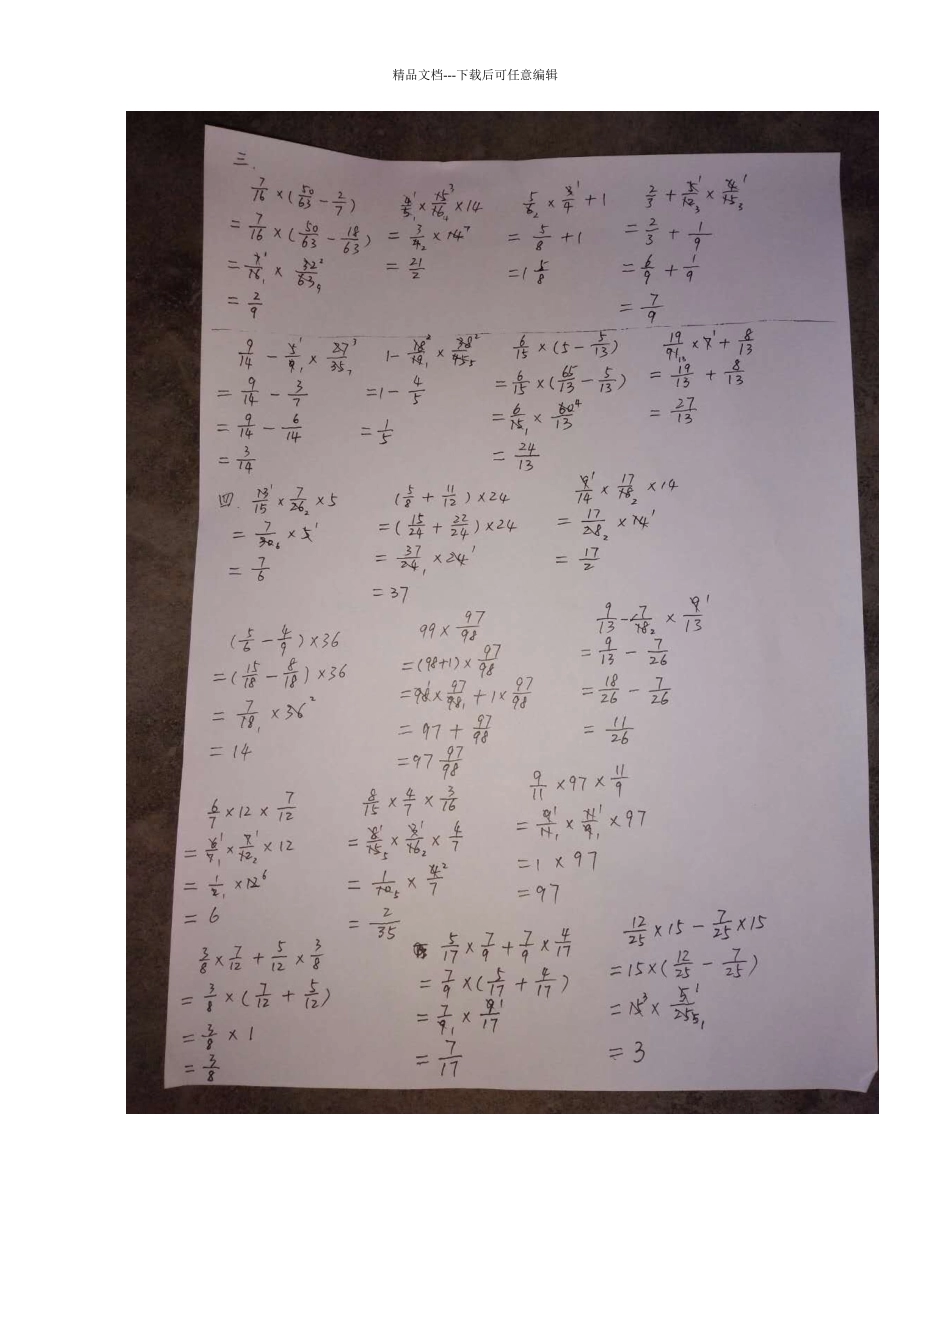 精品文档---下载后可任意编辑
三.
7/16×(50/63-2/7)
=7/16×(50/63-18/63)
=7/16×32/63
=2/9
4/5×15/16×14
=3/4×14
=21/2
5/6×3/4+1
=5/8+1
=1 5/8
2/3+5/12×4/15
=2/3+1/9
=6/9+1/9
=7/9
9/14-5/9×27/35
=9/14-3/7
=9/14-6/14
=3/14
1-18/19×38/45
=1-4/5
=1/5
6/15×(5-5/13)
=6/15×(65/13-5/13)
=6/15×60/13
=24/13
19/91×7+8/13
=19/13+8/13
=27/13
四.
13/15×7/26×5
=7/30×5
=7/6
(5/8+11/12)×24
=(15/24+22/24)×24
=37/24×24
=37
9/14×17/18×14
=17/28×14
=17/2
(5/6-4/9)×36
=(15/18-8/18)×36
=7/18×36
=14
99×97/98
=(98+1)×97/98
=98×97/98+1×97/98
=97+97/98
=97 97/98
9/13-7/18×9/13
=9/13-7/26
=18/26-7/26
=11/26
6/7×12×7/12
=6/7×7/12×12
=1/2×12
=6
8/15×4/7×3/16
=8/15×3/16×4/7
=1/10×4/7
=2/35
9/11×97×11/9
=9/11×11/9×97
=1×97
=97
3/8×7/12+5/12×3/8
=3/8×(7/12+5/12)
=3/8×1
=3/8
5/17×7/9+7/9×4/17
=7/9×(5/17+4/17)
=7/9×9/17
=7/17
12/25×15-7/25×15
=15×(12/25-7/25)
=15×5/25
=3